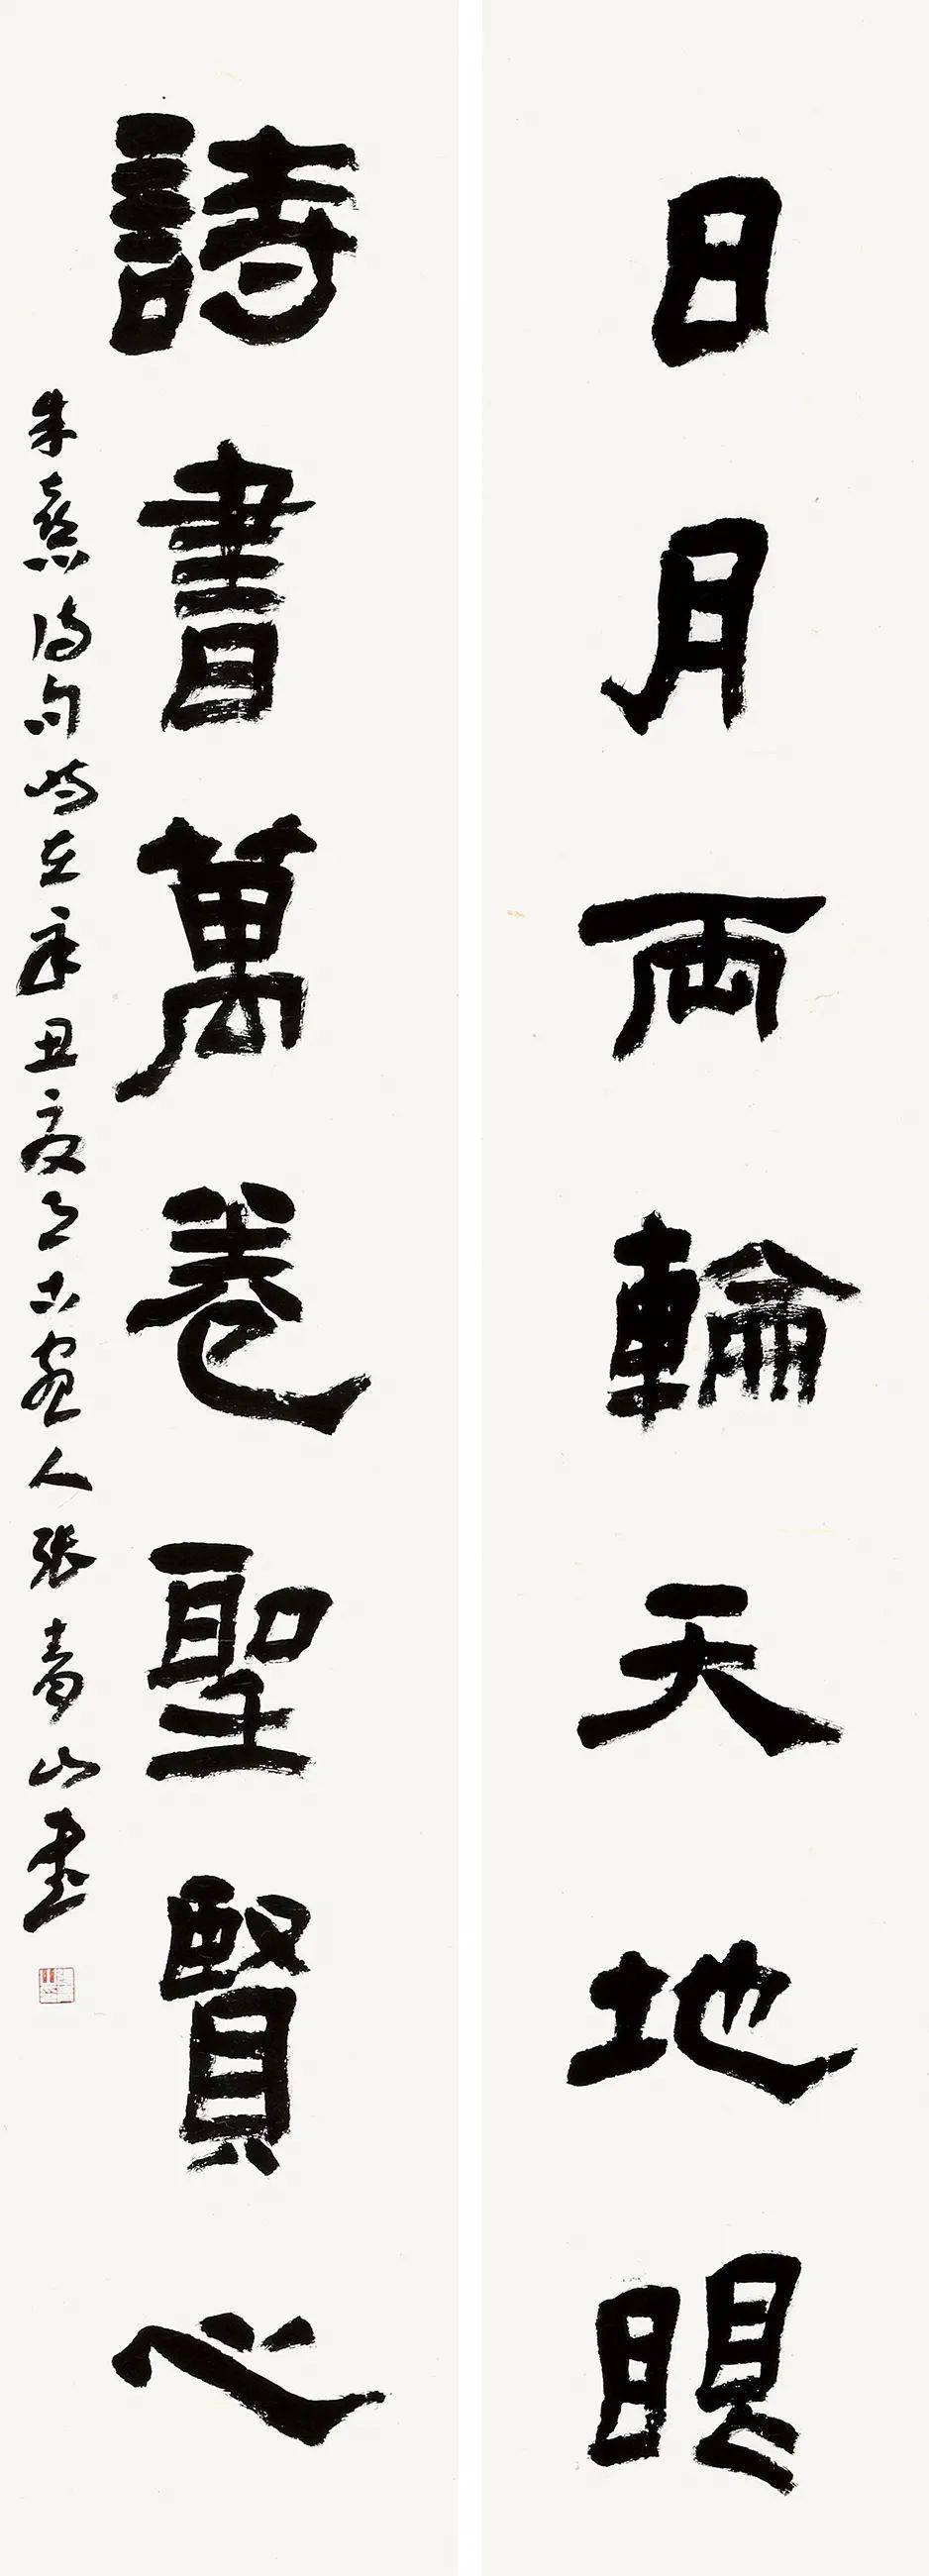 日月両輪天地眼
詩書萬卷聖賢心
朱熹詩句時在辛丑夏古宛人張青山書